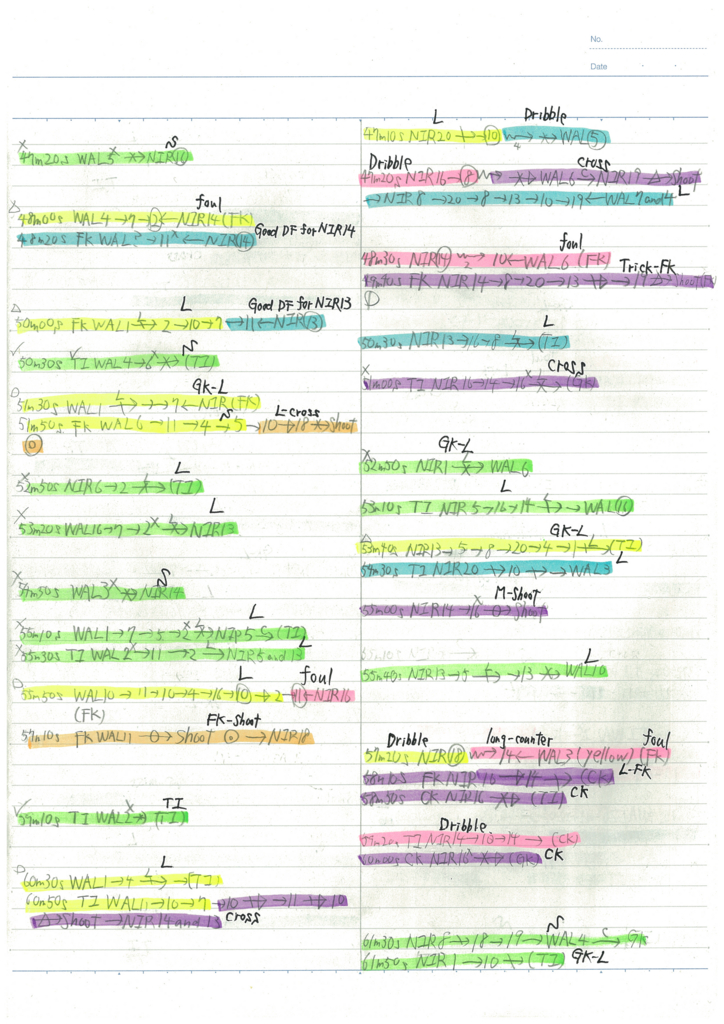 No.
Date
S
47m20s WAL5 → NIR16
foul
48m00s WAL4→7→2← NIR14(FK)
48m20s FK WAL → 11 ← NIR14 Good DF for NIR14
L Good DF for NIR13
50m00s FK WAL1 → 2 → 10 → 7 → 11 ← NIR13
S
50m30s TI WAL4 → 6 → (TI)
GK-L
51m30s WAL1 → → → 7 ← NIR(FK)
S L-cross
51m50s FK WAL6 → 11 → 4 → 5 → 10 → 18 → shoot
L
52m50s NIR6 → 2 → (TI)
L
53m20s WAL16 → 7 → 2 → NIR13
S
54m50s WAL3 → NIR14
L
55m10s WAL1 → 7 → 5 → 2 → NIR5 → (TI)
L
55m30s TI WAL2 → 11 → 2 → NIR5 and 13
L foul
55m50s WAL10 → 11 → 10 → 4 → 16 → 10 → 2 → 11 ← NIR16
(FK)
FK-Shoot
57m10s FK WAL11 → Shoot → NIR18
TI
59m10s TI WAL2 → (TI)
L
60m30s WAL1 → 4 → → (TI)
60m50s TI WAL11 → 10 → 7 → 10 → → 11 → 10
→ Shoot → NIR14 and 13 cross
L Dribble
47m10s NIR20 → 10 → → WAL5
Dribble cross
47m20s NIR16 → 8 → WAL6 → NIR19 → Shoot
→ NIR8 → 20 → 8 → 13 → 10 → 19 ← WAL7 and 4 L
foul
48m30s NIR14 → 10 ← WAL6 (FK)
Trick-FK
49m40s FK NIR14 → 8 → 20 → 13 → → 19 → shoot
L
50m30s NIR13 → 16 → 8 → (TI)
cross
51m00s TI NIR16 → 14 → 16 → (GK)
GK-L
52m50s NIR1 → WAL6
L
53m10s TI NIR5 → 16 → 14 → → WAL16
GK-L
53m40s NIR13 → 5 → 8 → 20 → 4 → 1 → (TI)
54m30s TI NIR20 → 10 → → WAL3 L
M-Shoot
55m00s NIR14 → 16 → Shoot
L
55m40s NIR13 → 5 → → 13 → WAL10
Dribble long-counter foul
57m20s NIR18 → 14 ← WAL3 (yellow) (FK)
58m10s FK NIR16 → 14 → (CK) L-FK
58m50s CK NIR16 → (TI) CK
Dribble
59m20s TI NIR14 → 18 → 14 → (CK)
60m00s CK NIR16 → (GK) CK
S
61m30s NIR8 → 18 → 19 → WAL4 → GK
61m50s NIR1 → 10 → (TI) GK-L